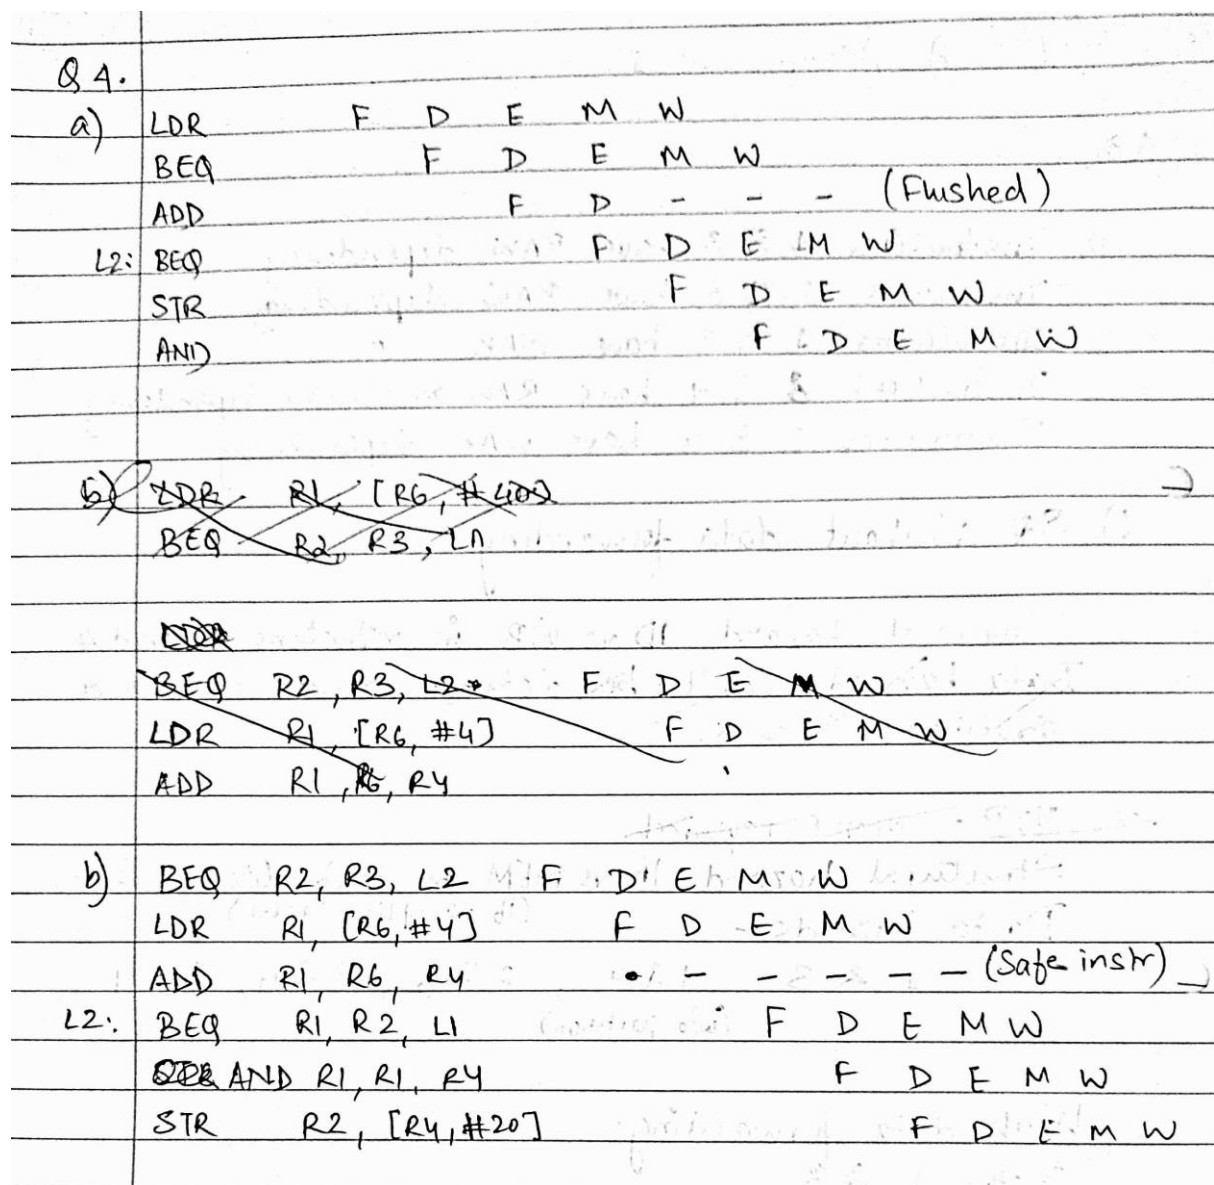 Q 4.
a) LDR F D E M W
BEQ F D E M W
ADD F D - - - (Flushed)
L2: BEQ F D E M W
STR F D E M W
AND F D E M W
b) LDR R1, [R6, #40]
BEQ R2, R3, L1
BEQ R2, R3, L2 F D E M W
LDR R1, [R6, #4] F D E M W
ADD R1, R6, R4
b) BEQ R2, R3, L2 F D E M W
LDR R1, [R6, #4] F D E M W
ADD R1, R6, R4 - - - - - (Safe instr)
L2: BEQ R1, R2, L1 F D E M W
AND R1, R1, R4 F D E M W
STR R2, [R4, #20] F D E M W